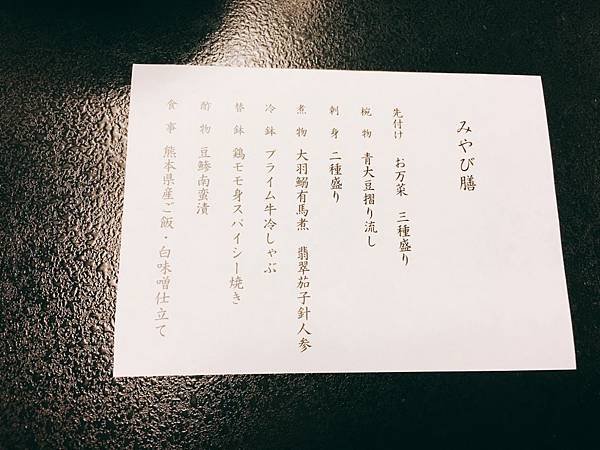 みやび膳
先付け　お万菜　三種盛り
椀物　青大豆摺り流し
刺身　二種盛り
煮物　大羽鰯有馬煮　翡翠茄子針人参
冷鉢　プライム牛冷しゃぶ
替鉢　鶏モモ身スパイシー焼き
酢物　豆鯵南蛮漬
食事　熊本県産ご飯・白味噌仕立て